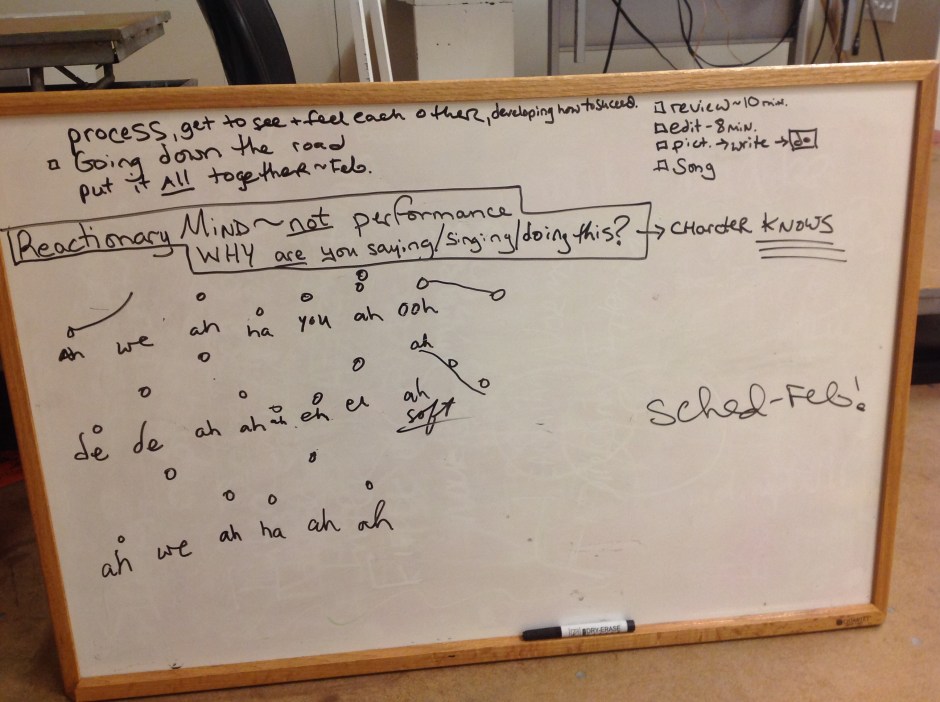 process, get to see + feel each other, developing how to succeed.
□ Going down the road
put it All together ~ Feb.
□ review ~ 10 min.
□ edit - 8 min.
□ pict. → write → do
□ Song
Reactionary MIND ~ not performance
WHY are you saying/singing/doing this? → CHARCTER KNOWS
Ah we ah ha you ah ooh
ah
de de ah ah ah eh el ah
soft
Sched - Feb!
ah we ah ha ah ah
DRY-ERASE